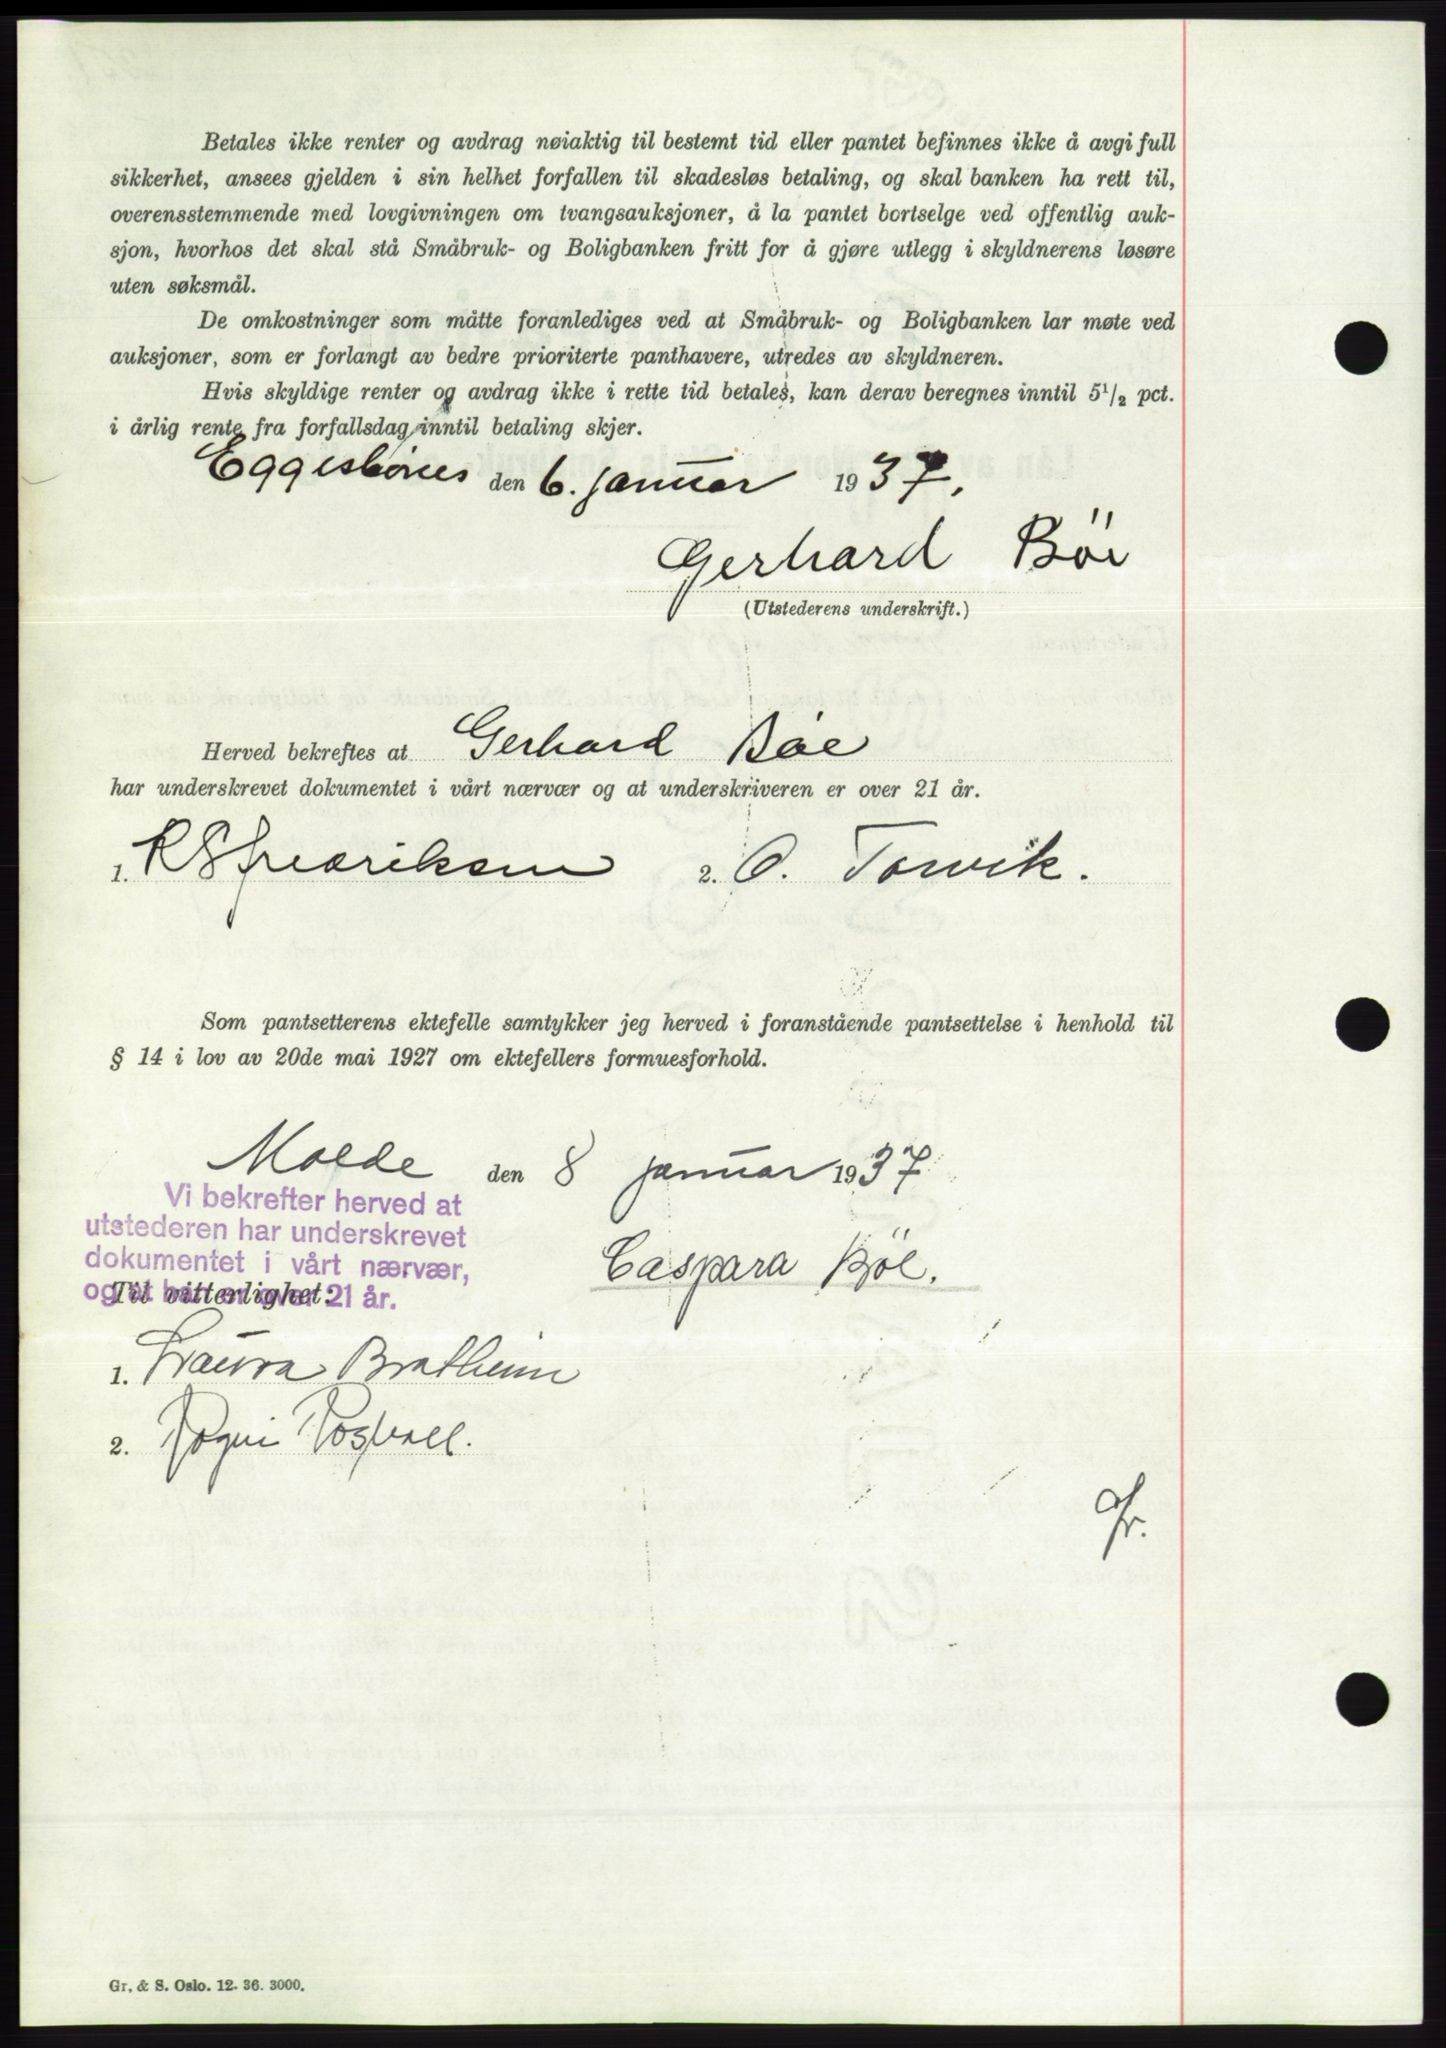 Betales ikke renter og avdrag nøiaktig til bestemt tid eller pantet befinnes ikke å avgi full
sikkerhet, ansees gjelden i sin helhet forfallen til skadesløs betaling, og skal banken ha rett til,
overensstemmende med lovgivningen om tvangsauksjoner, å la pantet bortselge ved offentlig auk-
sjon, hvorhos det skal stå Småbruk- og Boligbanken fritt for å gjøre utlegg i skyldnerens løsøre
uten søksmål.
De omkostninger som måtte foranlediges ved at Småbruk- og Boligbanken lar møte ved
auksjoner, som er forlangt av bedre prioriterte panthavere, utredes av skyldneren.
Hvis skyldige renter og avdrag ikke i rette tid betales, kan derav beregnes inntil 5 1/2 pct.
i årlig rente fra forfallsdag inntil betaling skjer.
Eggesbønes den 6. januar 1937.
Gerhard Böe
(Utstederens underskrift.)
Herved bekreftes at Gerhard Böe
har underskrevet dokumentet i vårt nærvær og at underskriveren er over 21 år.
1. R S Fredriksen 2. O. Torvik.
Som pantsetterens ektefelle samtykker jeg herved i foranstående pantsettelse i henhold til
§ 14 i lov av 20de mai 1927 om ektefellers formuesforhold.
Molde den 8 januar 1937
Vi bekrefter herved at
utstederen har underskrevet
dokumentet i vårt nærvær,
Caspara Böe.
og at han er over 21 år.
Til vitterlighet:
1. Laura Bratheim
2.
Gr. & S. Oslo. 12. 36. 3000.